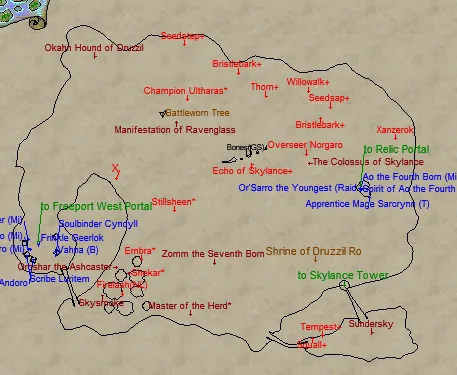 Seedstep+
Okahn Hound of Druzzil
Bristlebark+
Willowalk+
Thorn+
Champion Ultharas*
Seedsap+
Battleworn Tree
Manifestation of Ravenglass
Bristlebark+
Xanzerok
Bones(GSU
Overseer Norgaro
to Relic Portal
The Colossus of Skylance
X
Echo of Skylance+
Ao the Fourth Born (Mi
Or'Sarro the Youngest (Raid
Spirit of Ao the Fourth
Apprentice Mage Sarcrynn (T)
to Freeport West Portal
Stillsheen*
Soulbinder Cyndyll
Embra*
Zomm the Seventh Born
Shrine of Druzzil Ro
Shekar*
Scribe Luritem
Andoro
to Skylance Tower
Skysmoke
Master of the Herd*
Tempest+
Sundersky
Squall+